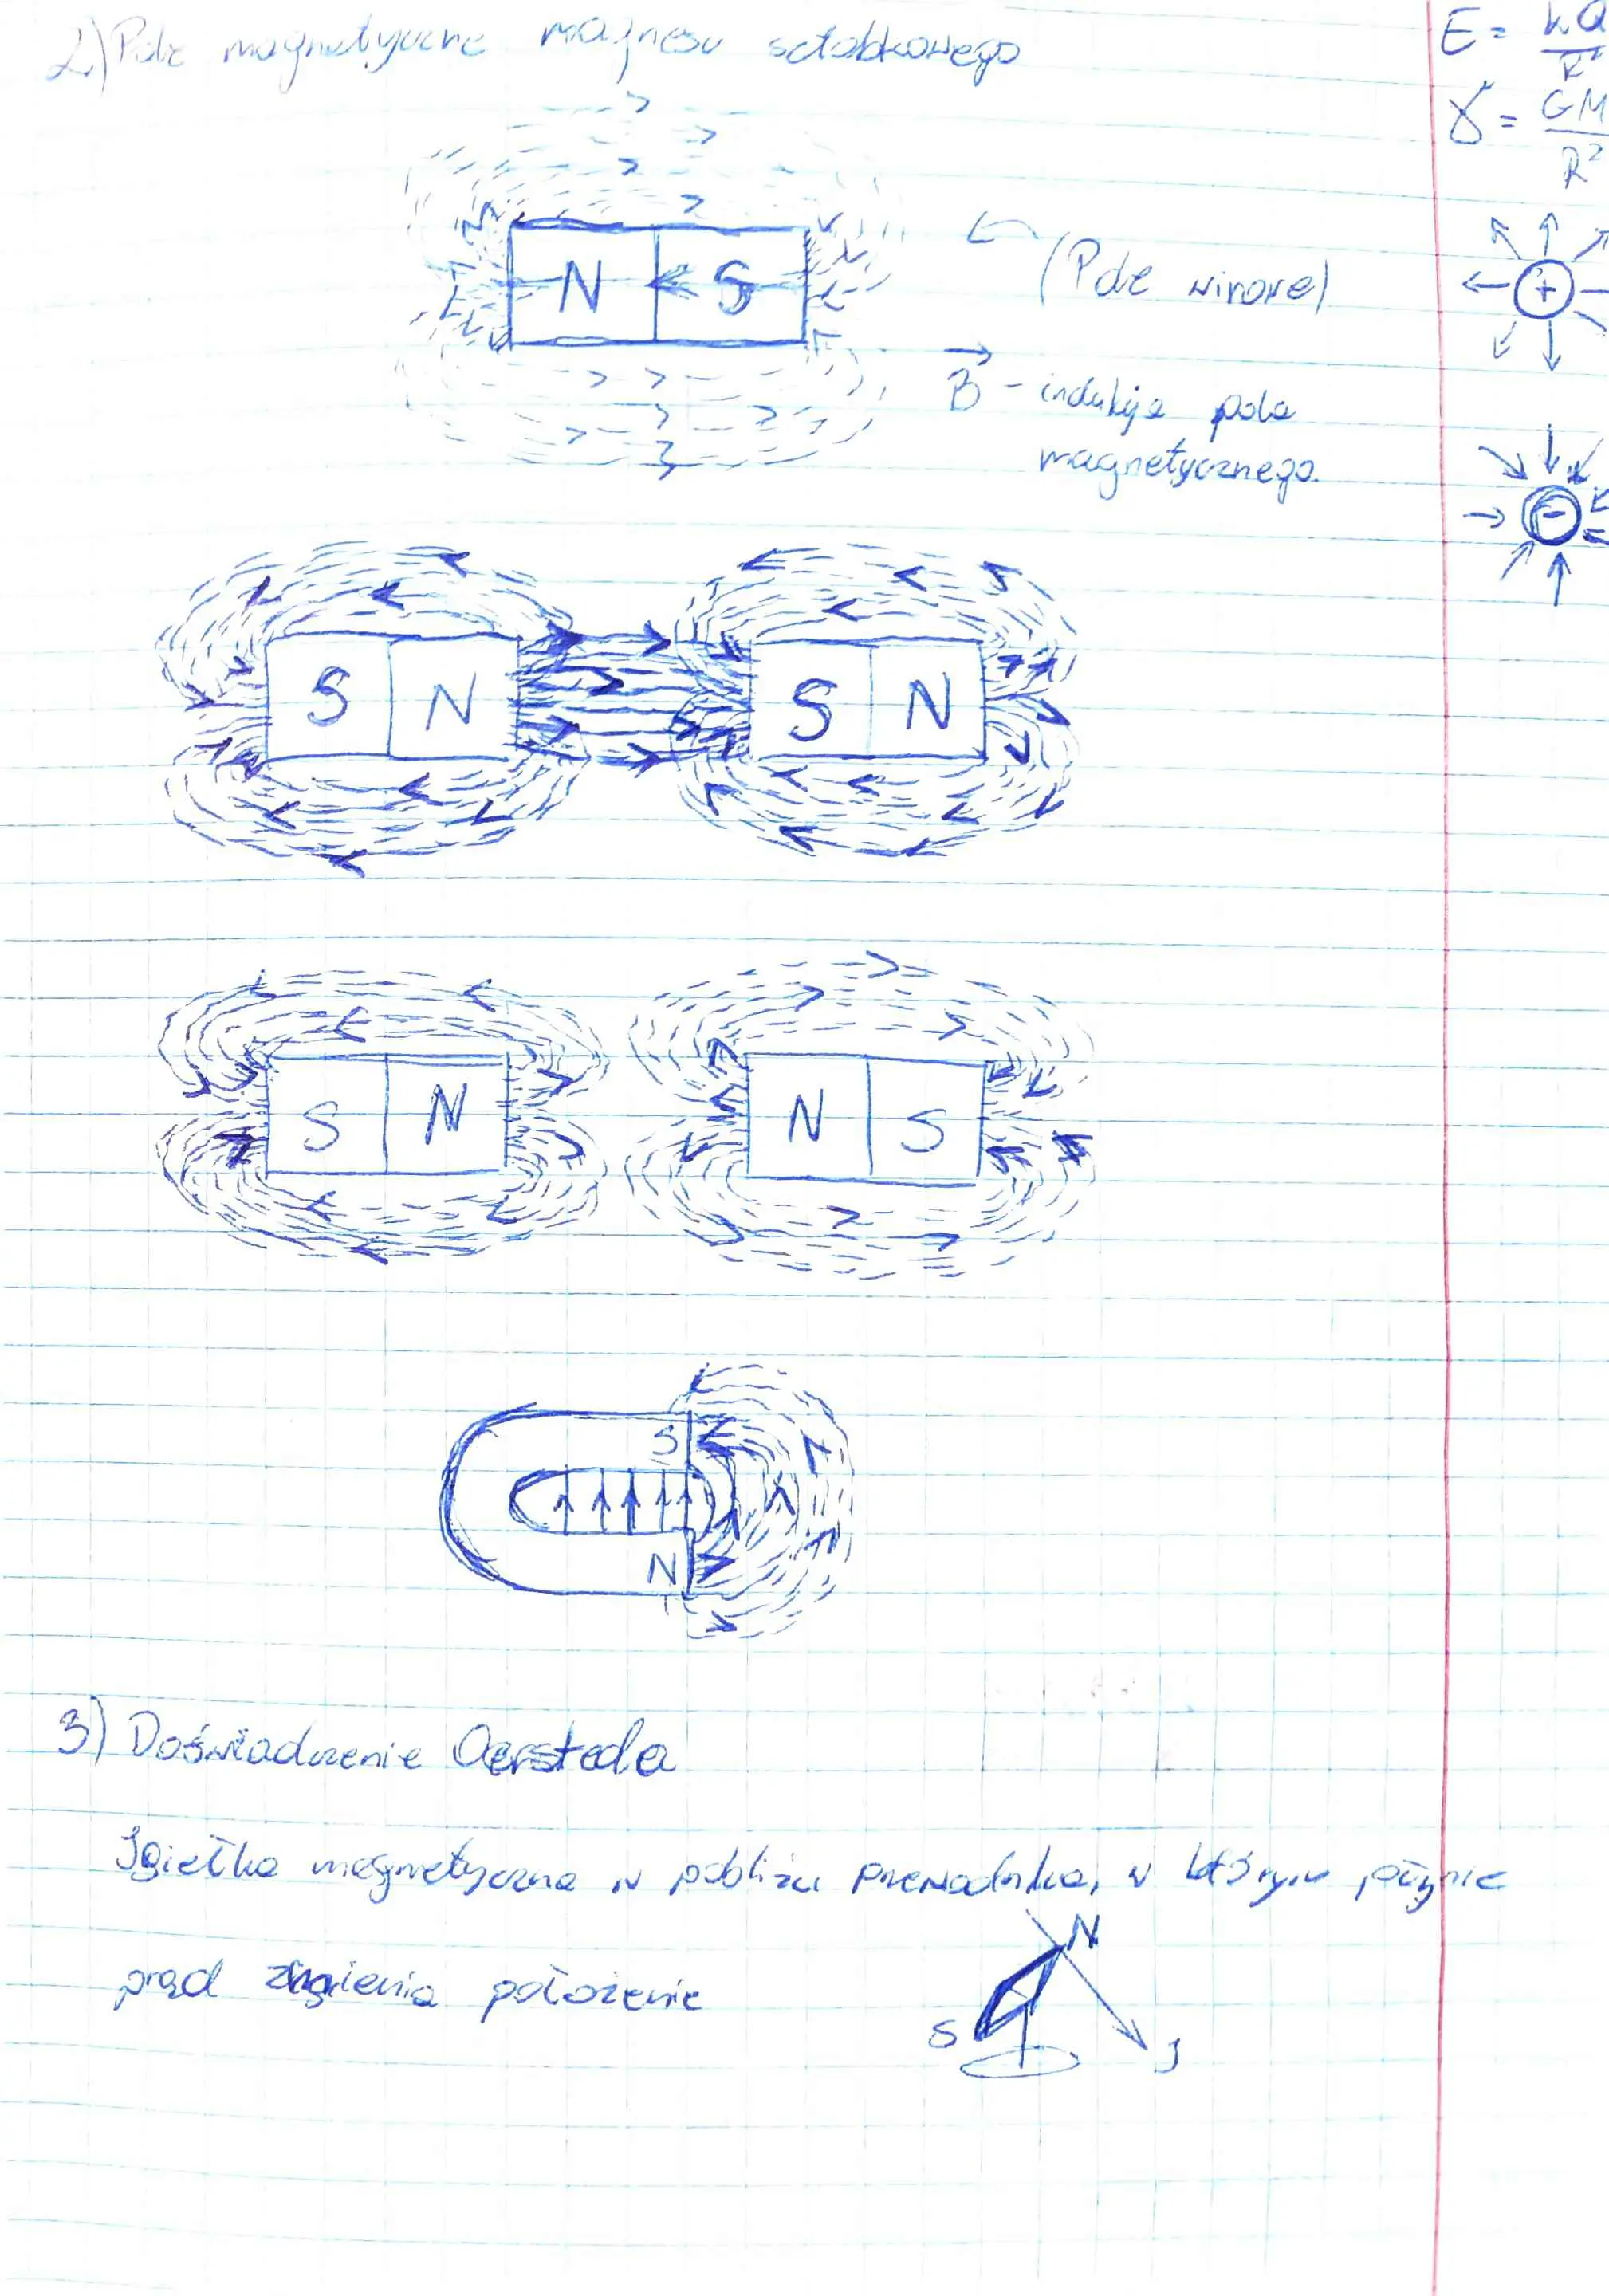 2) Pole magnetyczne magnesu sztabkowego
E = kQ/R²
γ = GM/R²
N S
(Pole wirowe)
+
B - indukcja pola
magnetycznego.
-
S N S N
S N N S
S
N
3) Doświadczenie Oersteda
Igiełka magnetyczna w pobliżu przewodnika, w którym płynie
prąd zmienia położenie
N
S
J